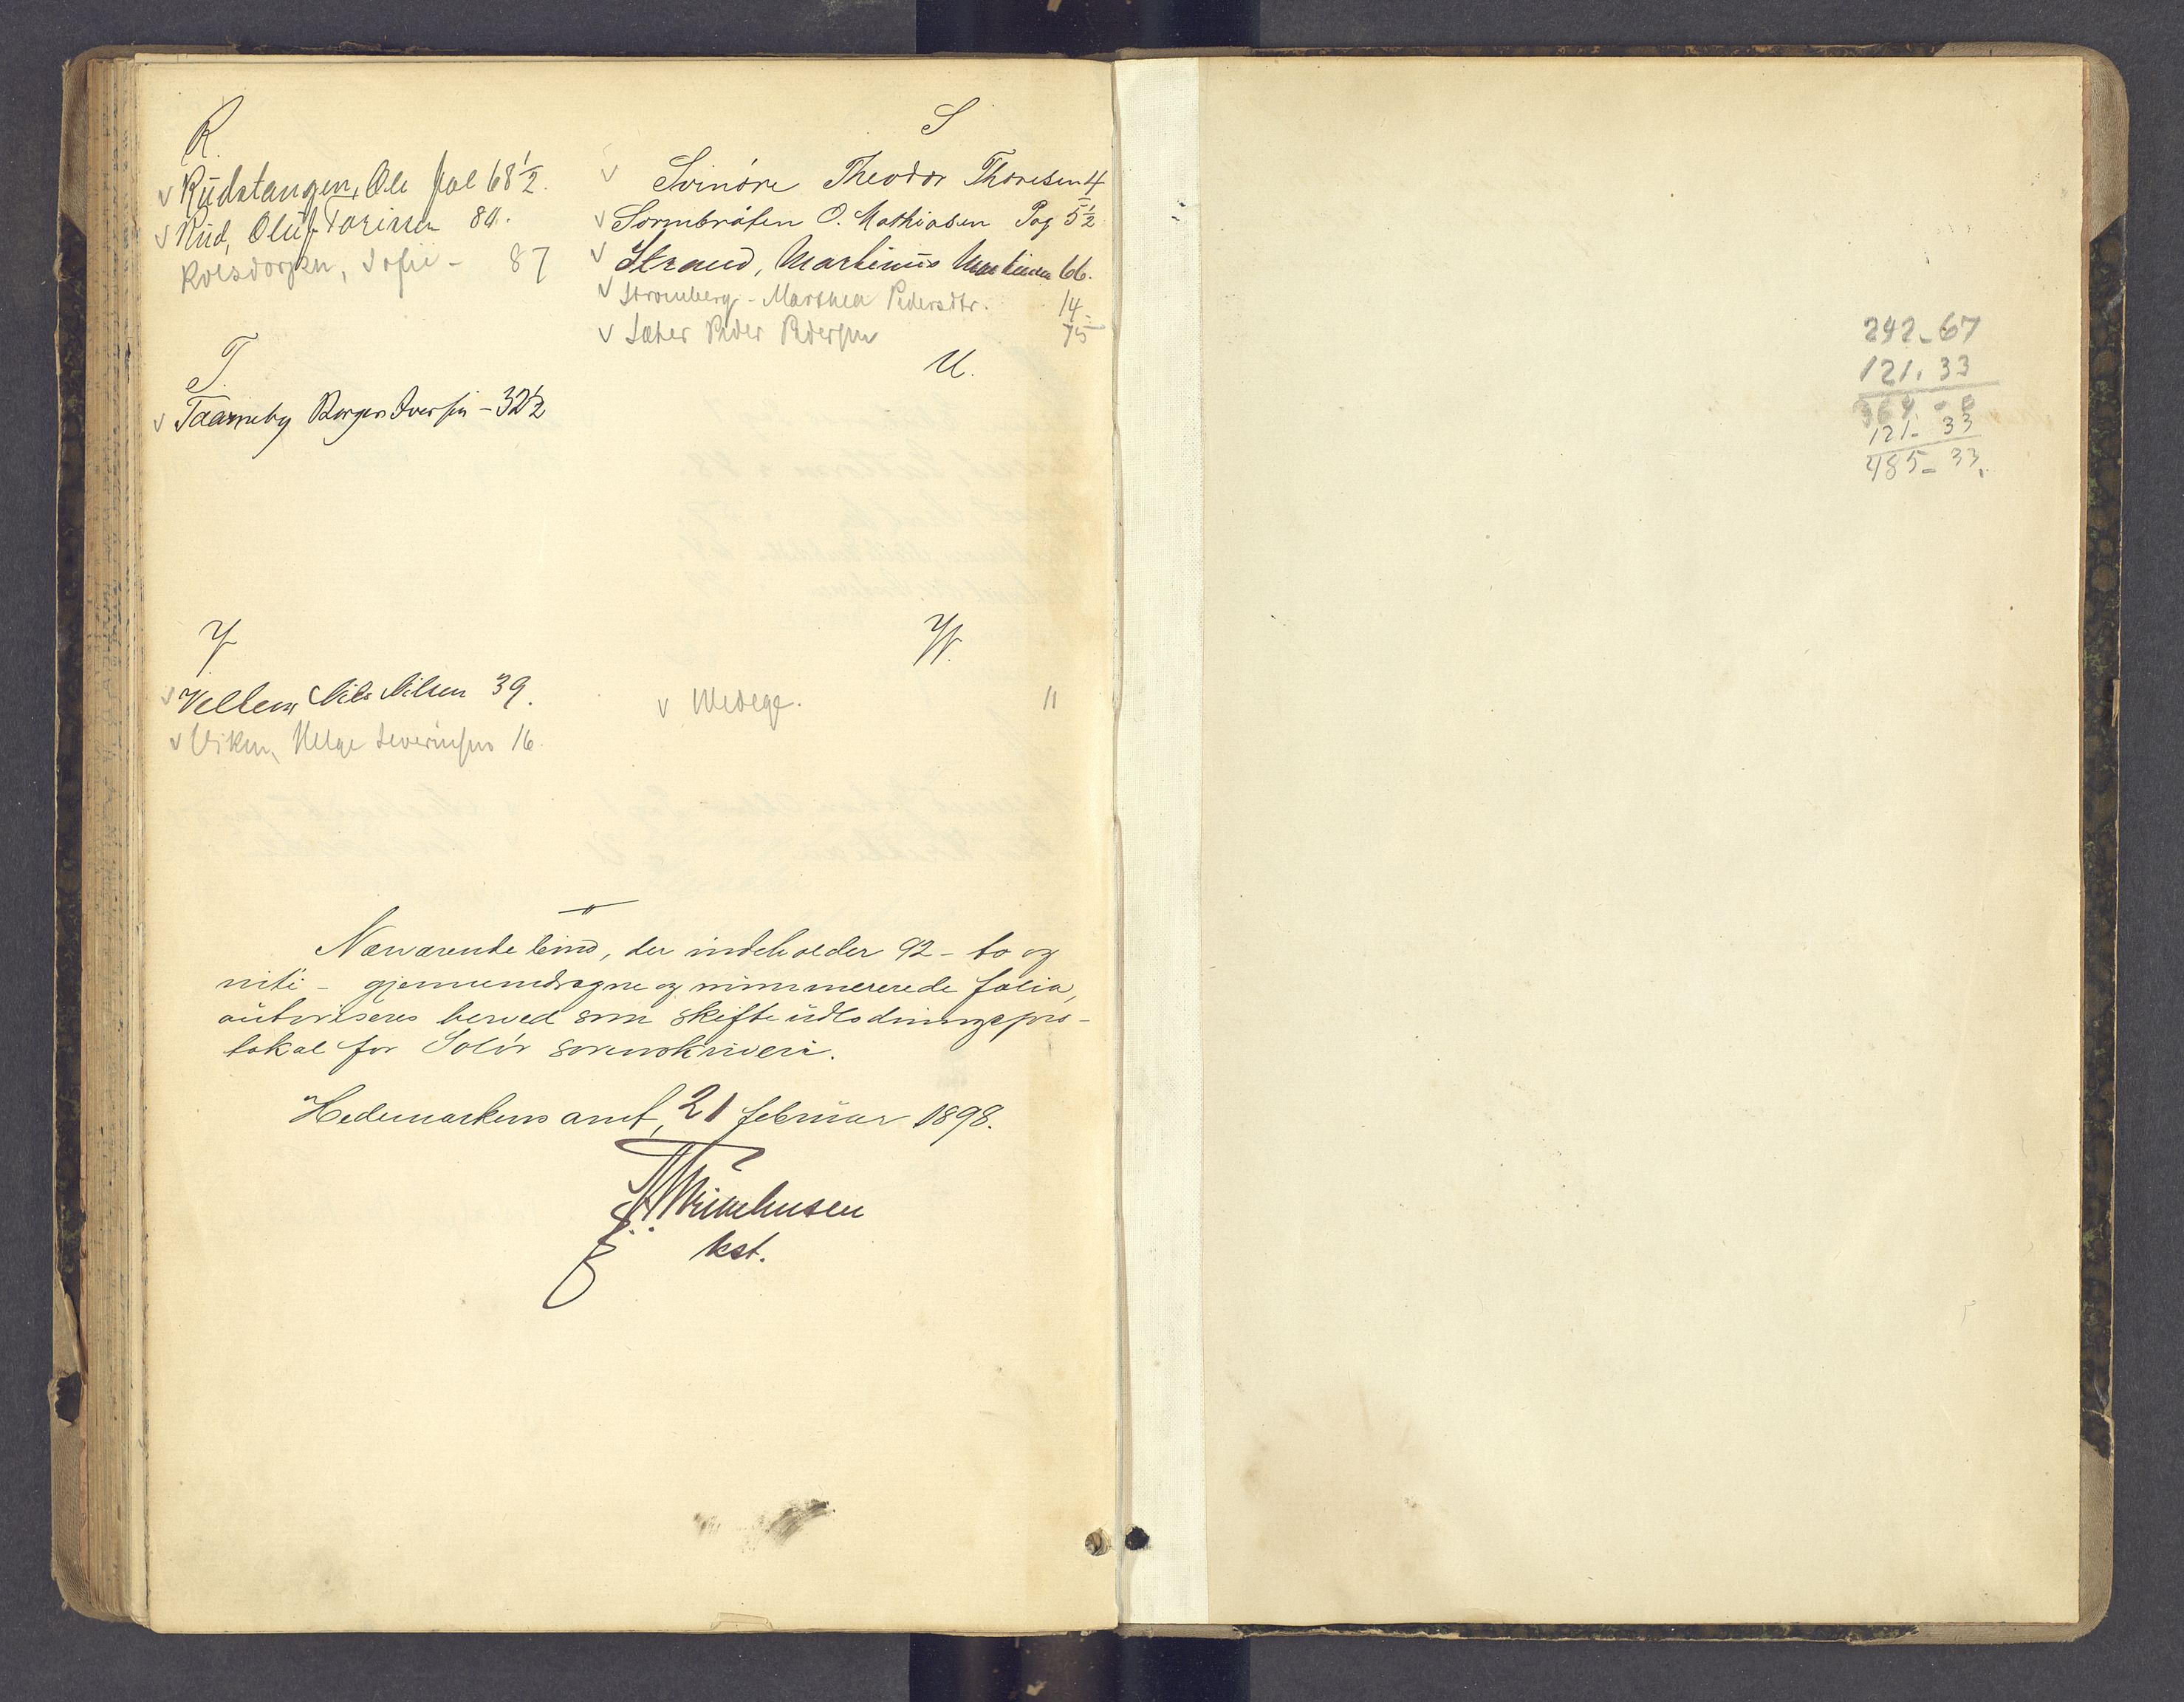 R.
v Rudstangen, Ole fol 68 1/2.
v Rud, Oluf Tarissen 80.
Kolsdorfsen, Sofie - 87
S
v Svinöre Theodor Thoresen 4
v Sormbråten O. Mathiasen Pag 5 1/2
v Strand, Martinus Martinsen 66.
v Stromberg - Marthea Pedersdtr. 14.
v Sæter Peder Pedersen 75
T.
v Taarneby Borger Iversen - 32 1/2
U.
V
v Vellem Nils Nilsen 39.
v Viken, Helge Severinsen 16.
W.
v Wedege. 11
Nærværende bind, der indeholder 92 - to og
niti - gjennemdragne og nummererede folia,
autoriseres herved som skifteudlodningspro-
tokol for Solör sorenskriveri.
Hedemarkens amt, 21 februar 1898.
kst.
242-67
121.33
364-0
121-33
485-33.